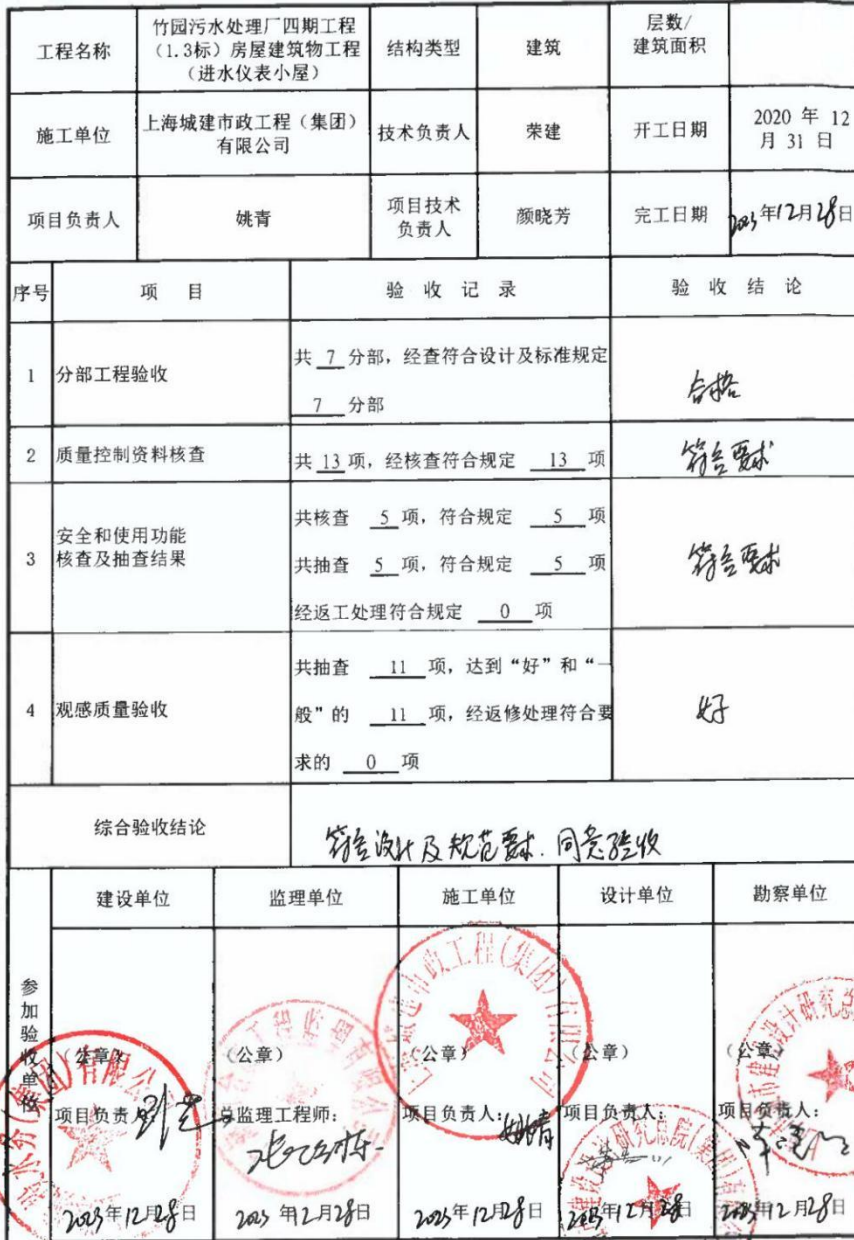 工程名称
竹园污水处理厂四期工程
（1.3标）房屋建筑物工程
（进水仪表小屋）
结构类型
建筑
层数/
建筑面积
施工单位
上海城建市政工程（集团）
有限公司
技术负责人
荣建
开工日期
2020 年 12
月 31 日
项目负责人
姚青
项目技术
负责人
颜晓芳
完工日期
2023年12月28日
序号
项 目
验 收 记 录
验 收 结 论
1
分部工程验收
共 7 分部，经查符合设计及标准规定
7 分部
合格
2
质量控制资料核查
共 13 项，经核查符合规定 13 项
符合要求
3
安全和使用功能
核查及抽查结果
共核查 5 项，符合规定 5 项
共抽查 5 项，符合规定 5 项
经返工处理符合规定 0 项
符合要求
4
观感质量验收
共抽查 11 项，达到“好”和“一
般”的 11 项，经返修处理符合要
求的 0 项
好
综合验收结论
符合设计及规范要求.同意验收
参加验收单位
建设单位
监理单位
施工单位
设计单位
勘察单位
（公章）
（公章）
（公章）
（公章）
（公章）
项目负责人
总监理工程师：
项目负责人：
姚青
项目负责人：
项目负责人：
2023年12月28日
2023年12月28日
2023年12月28日
2023年12月28日
2023年12月28日